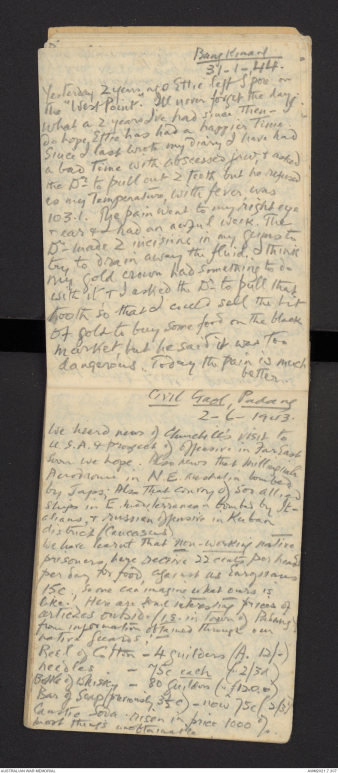 Bangkinang
31-1-44.
Yesterday 2 years ago Ettie left S'pore on
the "West Point". I'll never forget the day.
What a 2 years I've had since then - I
do hope Ettie has had a happier time.
Since I last wrote my diary I have had
a bad time with abscessed jaw & asked
the Dr to pull out 2 teeth but he refused
as my Temperature with fever was
103.1. The pain went to my right eye
& ear & I had an awful week. The
Dr made 2 incisions in my gums to
try to drain away the fluid. I think
my gold crown had something to do
with it & I asked the Dr to pull that
tooth so that I could sell the bit
of gold to buy some food on the black
market but he said it was too
dangerous. Today the pain is much
better.
Civil Gaol, Padang
2-6-1943.
We heard news of Churchill's visit to
U.S.A. & prospect of offensive in Far East
soon we hope. Also news that Millingimbi
Aerodrome in N.E. Australia bombed
by Japs; Also that convoy of 30 allied
ships in E. Mediterranean bombed by It-
alians, & Russian offensive in Kuban
district (Caucasus)
We have learnt that non-working native
prisoners here receive 22 cents per head
per day for food, against us Europeans
15c, some can imagine what ours is
like. Here are some interesting prices of
articles outside, i.e. in town of Padang,
from information obtained through our
native guards :-
Reel of Cotton - 4 guilders (A. 12/-)
needles - 75c each (2/3d
Bottle of Whisky - 80 Guilders (£12.0.0)
Bar of Soap (previously 3½c) - now 75c (2/3)
Caustic Soda - risen in price 1000%.
most things unobtainable
AUSTRALIAN WAR MEMORIAL